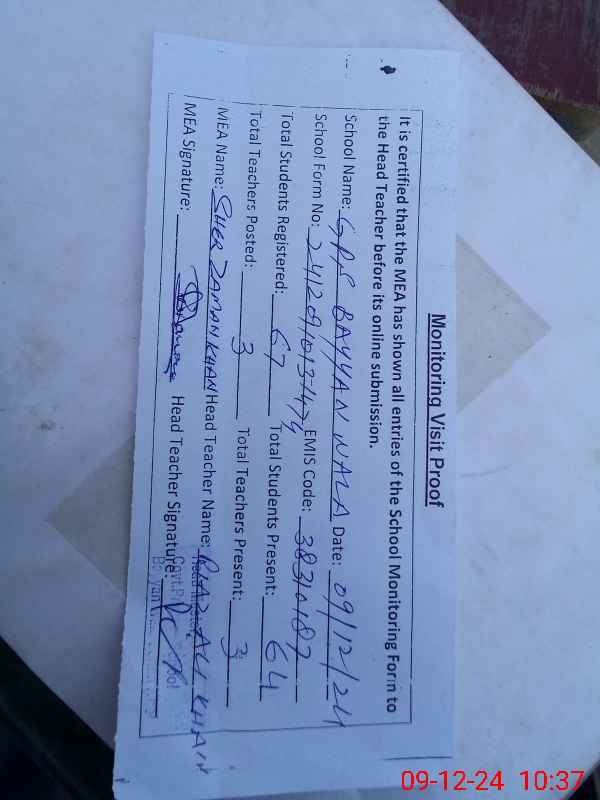 Monitoring Visit Proof
It is certified that the MEA has shown all entries of the School Monitoring Form to
the Head Teacher before its online submission.
School Name: GPS BAYYAN WALA Date: 09/12/24
School Form No: EMIS Code: 38310187
Total Students Registered: 67 Total Students Present: 64
Total Teachers Posted: 3 Total Teachers Present: 3
MEA Name: SHER ZAMAN KHAN Head Teacher Name: RIAZ ALI KHAN
MEA Signature: Head Teacher Signature:
09-12-24 10:37